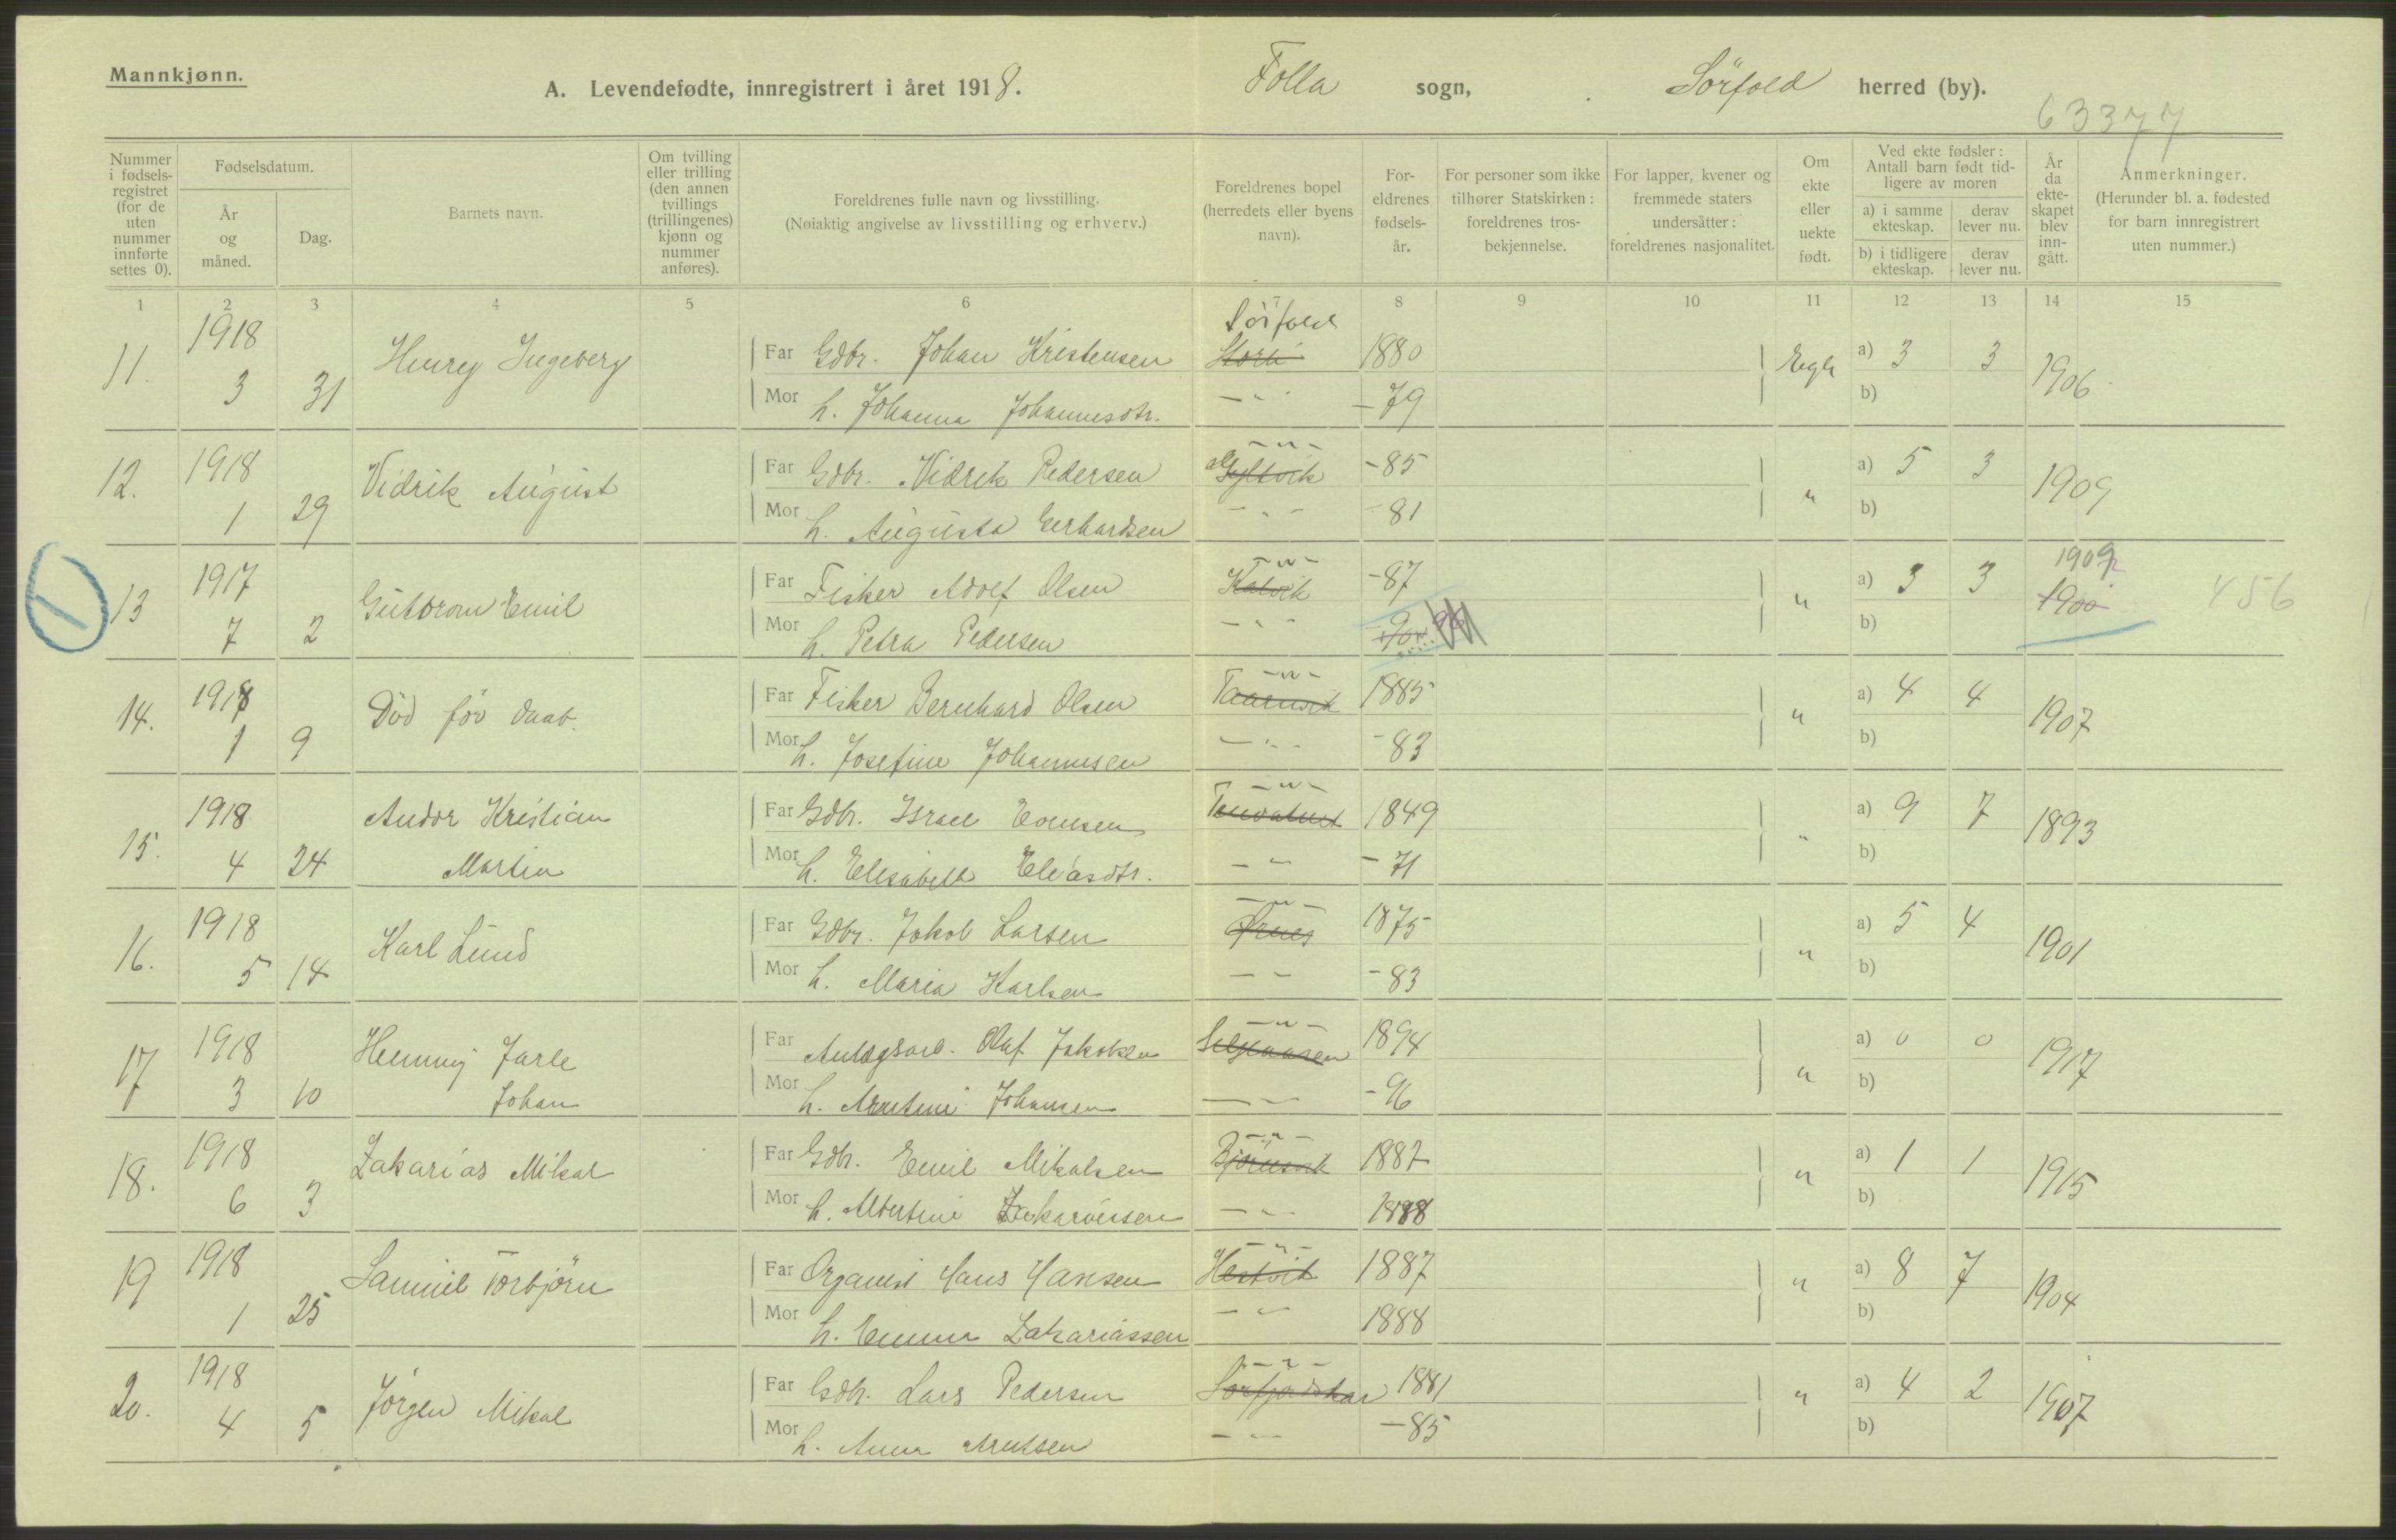 Mannkjønn.
A. Levendefødte, innregistrert i året 1918.
Folla sogn, Sörfold herred (by).
63377
Nummer i fødselsregistret (for de uten nummer innførte settes 0).
Fødselsdatum.
År og måned.
Dag.
Barnets navn.
Om tvilling eller trilling (den annen tvillings (trillingenes) kjønn og nummer anføres).
Foreldrenes fulle navn og livsstilling.
(Nøiaktig angivelse av livsstilling og erhverv.)
Foreldrenes bopel (herredets eller byens navn).
Foreldrenes fødselsår.
For personer som ikke tilhører Statskirken: foreldrenes trosbekjennelse.
For lapper, kvener og fremmede staters undersåtter: foreldrenes nasjonalitet.
Om ekte eller uekte født.
Ved ekte fødsler: Antall barn født tidligere av moren
a) i samme ekteskap. derav lever nu.
b) i tidligere ekteskap. derav lever nu.
År da ekteskapet blev inngått.
Anmerkninger.
(Herunder bl. a. fødested for barn innregistrert uten nummer.)
1 2 3 4 5 6 7 8 9 10 11 12 13 14 15
11. 1918 3 31 Henry Ingeberg
Far Gdbr. Johan Kristensen Sörfold 1880 Egte a) 3 3 1906
Mor h. Johanna Johannesdtr. -"- -79 b)
12. 1918 1 29 Vidrik August
Far Gdbr. Vidrik Pedersen -"- Gyltvik -85 " a) 5 3 1909
Mor h. Augusta Gerhardsen -"- -81 b)
13 1917 7 2 Guttorm Emil
Far Fisker Adolf Olsen -"- Kalvik -87 " a) 3 3 1909 1900 456
Mor h. Petra Pedersen -"- 96 b)
14. 1918 1 9 Död för daab.
Far Fisker Bernhard Olsen -"- Taarnvik 1885 " a) 4 4 1907
Mor h. Josefine Johannesen -"- -83 b)
15. 1918 4 24 Andor Kristian Martin
Far Gdbr. Israel -"- 1849 " a) 9 7 1893
Mor h. Elisabeth Eliasdtr. -"- -71 b)
16. 1918 5 14 Karl Lund
Far Gdbr. Jakob Larsen -"- Ørnes 1875 " a) 5 4 1901
Mor h. Maria Karlsen -"- -83 b)
17 1918 3 10 Henning Jarle Johan
Far Anlægsarb. Olaf Jakobsen -"- 1894 " a) 0 0 1917
Mor h. Arntine Johansen -"- -96 b)
18. 1918 6 3 Zakarias Mikal
Far Gdbr. Emil Mikalsen -"- Bjørnsvik 1887 " a) 1 1 1915
Mor h. Albertine Zakariassen -"- 1888 b)
19 1918 1 25 Samuel Torbjörn
Far Organist Hans Hansen -"- Hestvik 1887 " a) 8 7 1904
Mor h. Emma Zakariassen -"- 1888 b)
20. 1918 4 5 Jörgen Mikal
Far Gdbr. Lars Pedersen -"- 1881 " a) 4 2 1907
Mor h. Anna Arntsen -"- -85 b)
1